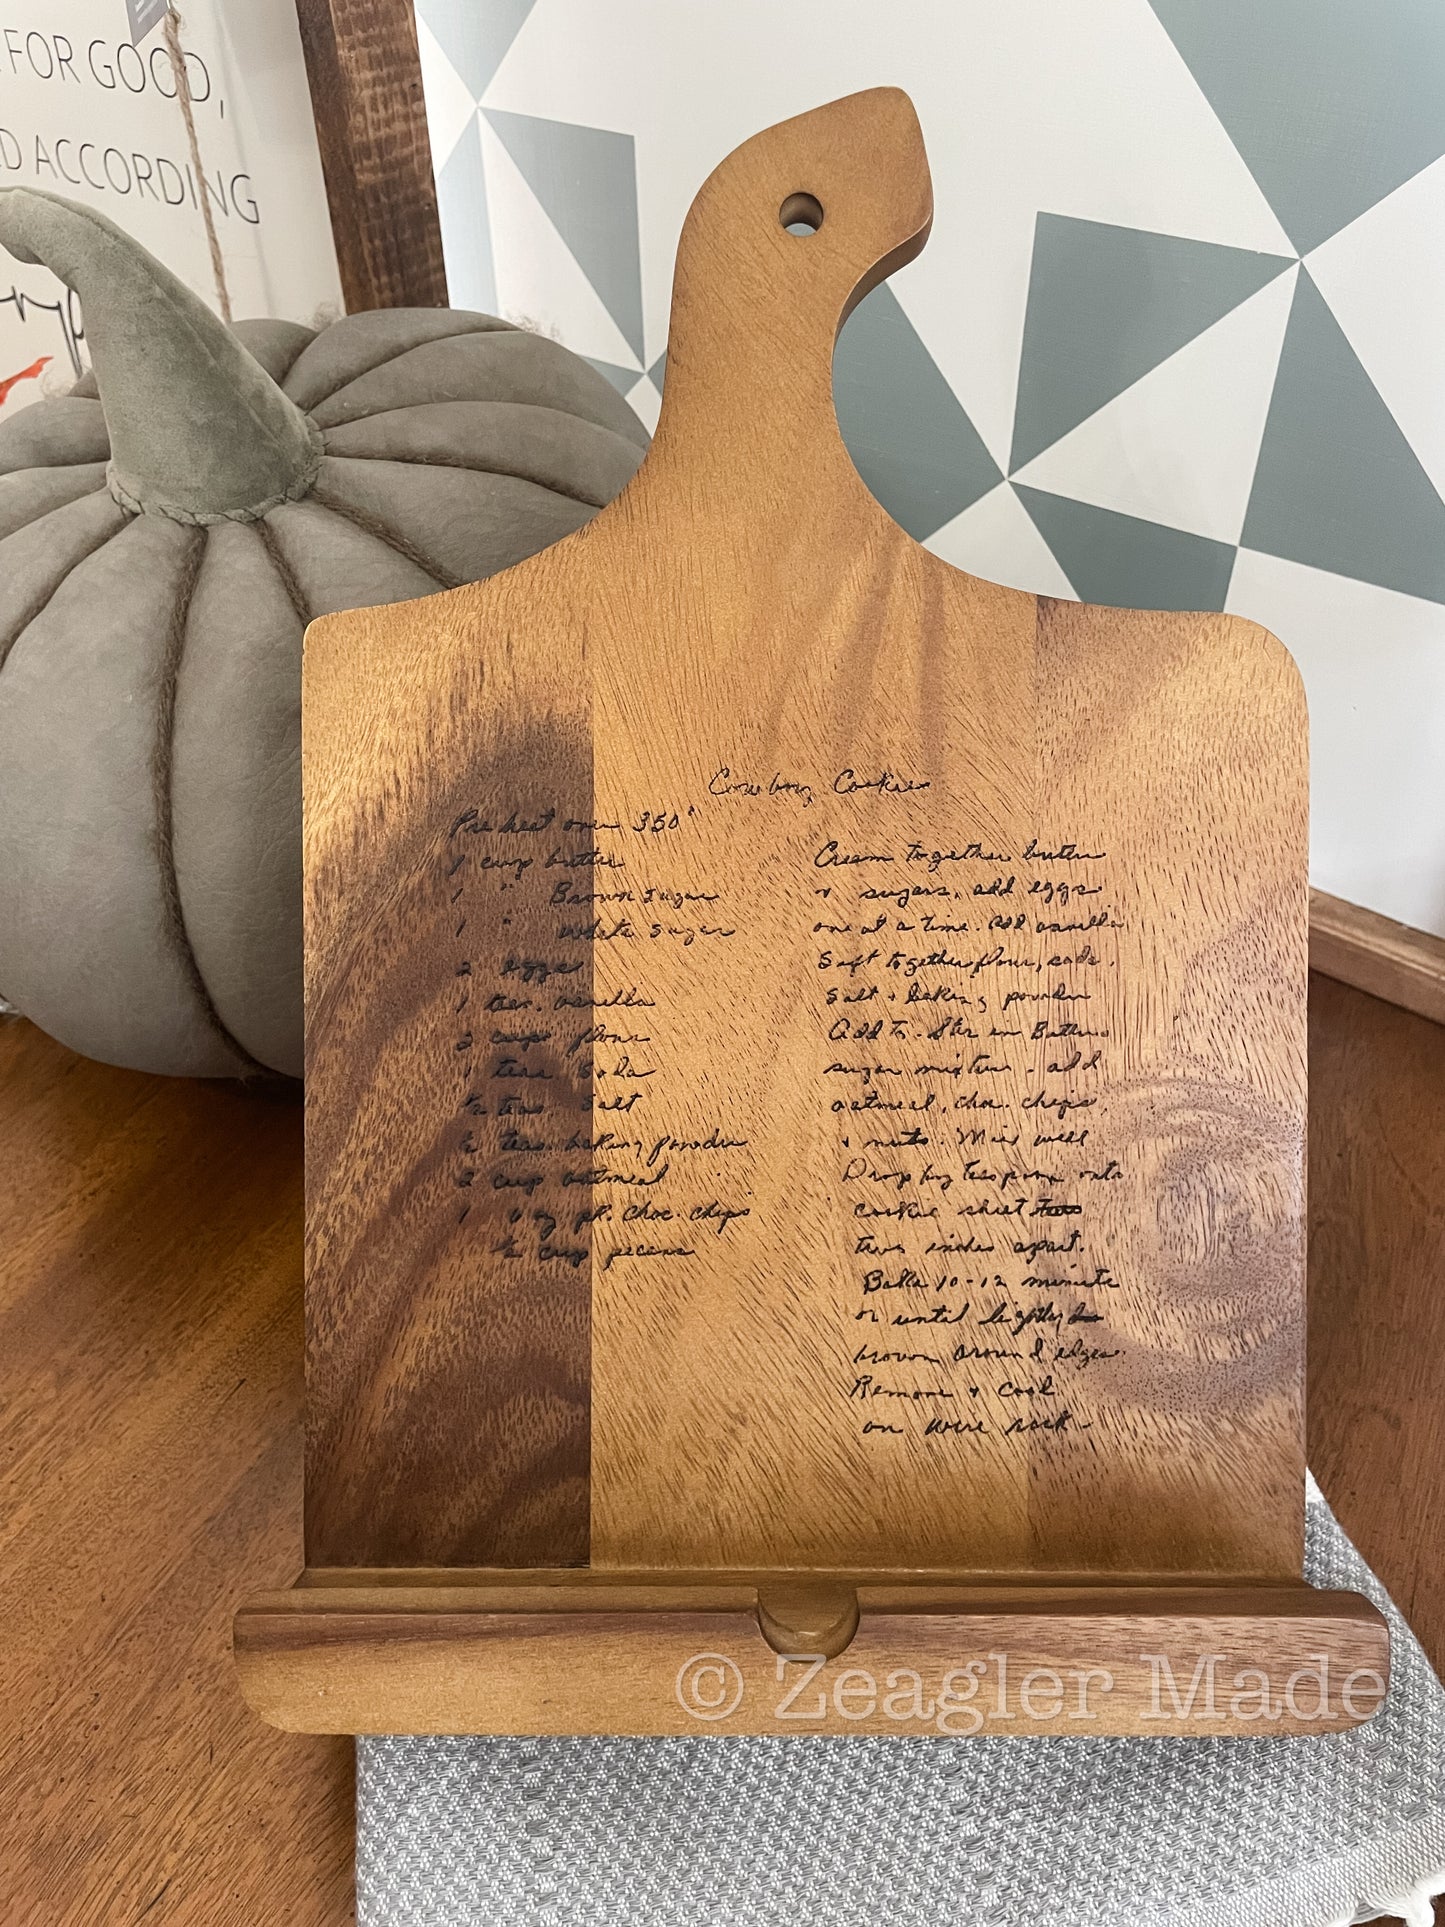 FOR GOOD,
D ACCORDING
Cowboy Cookies
Pre heat oven 350°
1 cup butter
1 " Brown Sugar
1 " White Sugar
2 eggs
1 teas. vanilla
2 cups flour
1 teas Soda
½ teas. Salt
½ teas. baking powder
2 cup oatmeal
1 6 oz pk. choc. chips
½ cup pecans
Cream together butter
+ sugars, add eggs
one at a time. Add vanilla
Sift together flour, soda,
Salt + baking powder
Add to. Stir in Butter
sugar mixture - add
oatmeal, choc. chips,
+ nuts. Mix well
Drop by teaspoon onto
cookie sheet
two inches apart.
Bake 10-12 minute
or until lightly
brown around edges.
Remove + cool
on wire rack-
© Zeagler Made